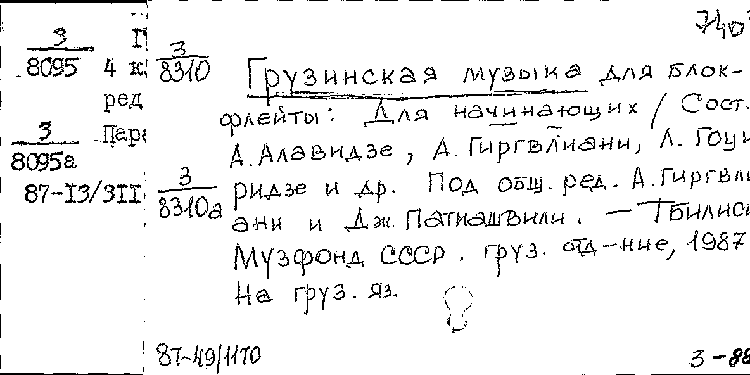 740
3 
8095 4
ред
3
8095а
87-13/3II
3
8310 Грузинская музыка для блок-
флейты: Для начинающих / Сост.
А. Алавидзе, А. Гиргвлиани, Л.
3
8310а ридзе и др. Под общ. ред. А. Гиргвли
ани и Дж. Патиашвили. — Тбилиси
Музфонд СССР. груз. отд-ние, 1987
На груз. яз.
87-49/1170
3-88